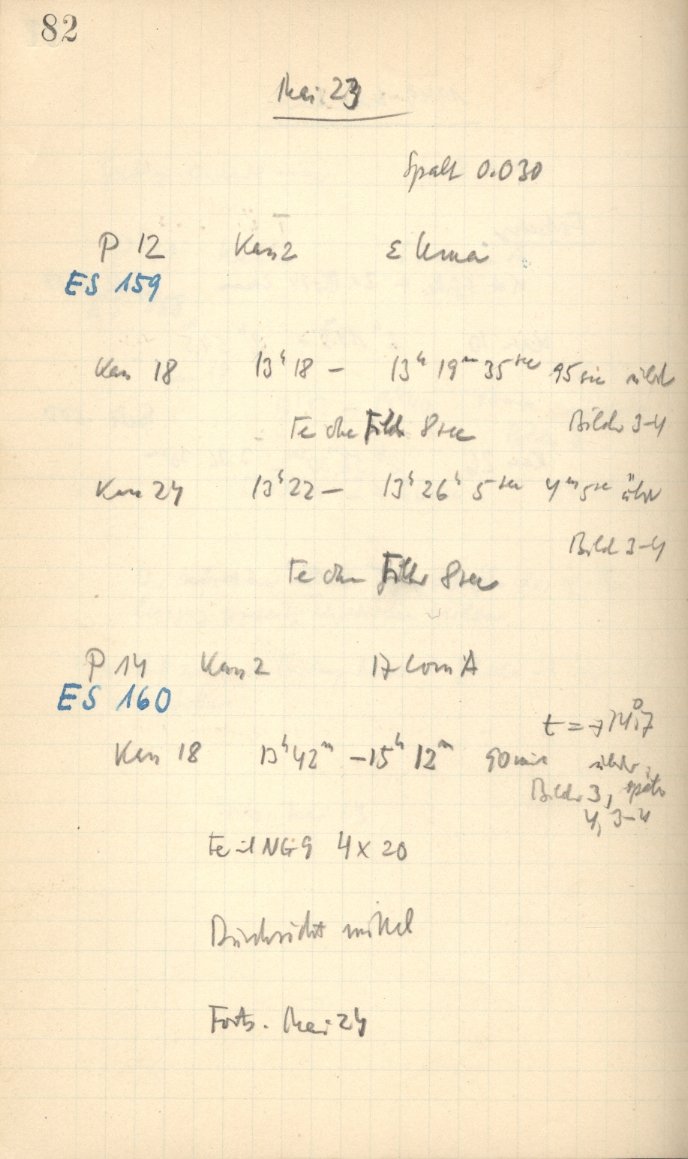 82
Mai 23
Spalt 0.030
P 12 Kam 2 ε Uma
ES 159
Kas 18 13ʰ 18 – 13ʰ 19ᵐ 35ˢᵉᶜ 95 sec
Fe ohne Filter 8 sec Bild 3-4
Kas 24 13ʰ 22 – 13ʰ 26ʰ 5ˢᵉᶜ 4ᵐ 5ˢᵉᶜ
Bild 3-4
Fe ohne Filter 8 sec
P 14 Kam 2 17 Com A
ES 160
t = +14,°7
Kas 18 13ʰ 42ᵐ – 15ʰ 12ᵐ 90 min
Bild 3, später
4, 3-4
Fe mit NG 9 4 x 20
Durchsicht mittel
Forts. Mai 24